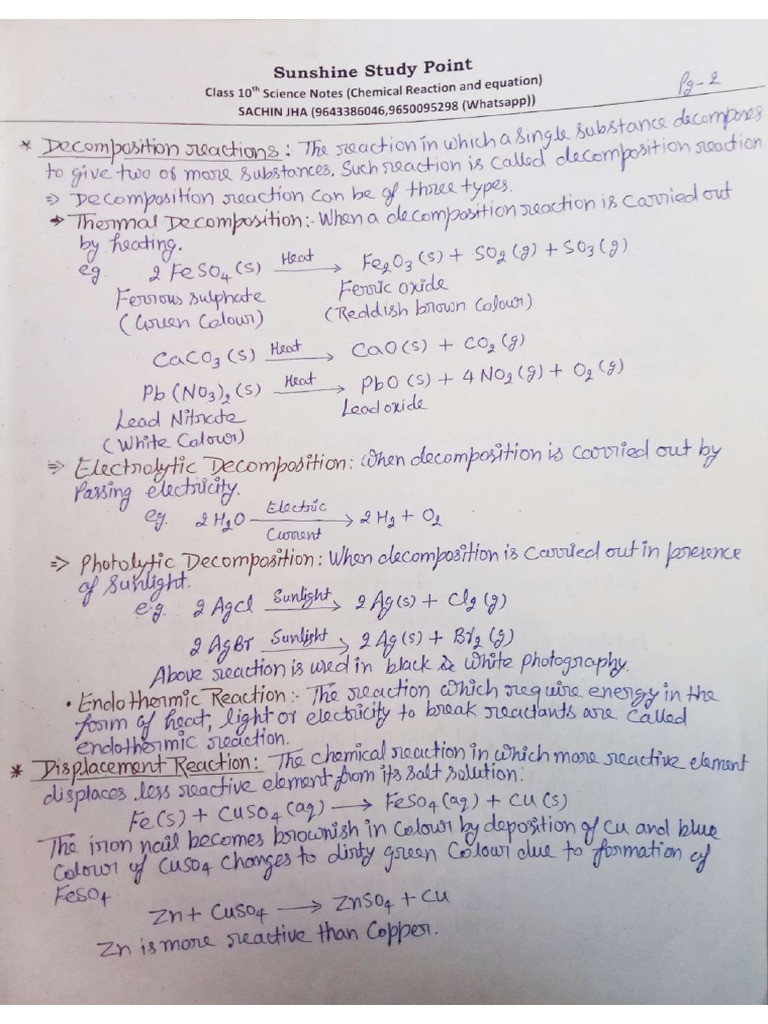 Sunshine Study Point
Class 10th Science Notes (Chemical Reaction and equation)
SACHIN JHA (9643386046,9650095298 (Whatsapp))
Pg-2
* Decomposition reactions: The reaction in which a single substance decomposes
to give two or more substances. Such reaction is called decomposition reaction
⇒ Decomposition reaction can be of three types.
→ Thermal Decomposition:- When a decomposition reaction is carried out
by heating.
eg. 2 FeSO4 (s) Heat → Fe2O3 (s) + SO2 (g) + SO3 (g)
Ferrous sulphate Ferric oxide
(Green Colour) (Reddish brown Colour)
CaCO3 (s) Heat → CaO(s) + CO2 (g)
Pb (NO3)2 (s) Heat → PbO (s) + 4 NO2 (g) + O2 (g)
Lead Nitrate Lead oxide
(White Colour)
⇒ Electrolytic Decomposition: When decomposition is carried out by
Passing electricity.
eg. 2 H2O Electric Current → 2 H2 + O2
⇒ Photolytic Decomposition: When decomposition is carried out in presence
of Sunlight.
e.g. 2 AgCl Sunlight → 2 Ag(s) + Cl2 (g)
2 AgBr Sunlight → 2 Ag(s) + Br2 (g)
Above reaction is used in black & white photography.
• Endothermic Reaction:- The reaction which require energy in the
form of heat, light or electricity to break reactants are called
endothermic reaction.
* Displacement Reaction: The chemical reaction in which more reactive element
displaces less reactive element from its salt solution:
Fe(s) + CuSO4 (aq) → FeSO4 (aq) + Cu (s)
The iron nail becomes brownish in colour by deposition of Cu and blue
Colour of CuSO4 changes to dirty green Colour due to formation of
FeSO4
Zn + CuSO4 → ZnSO4 + Cu
Zn is more reactive than Copper.